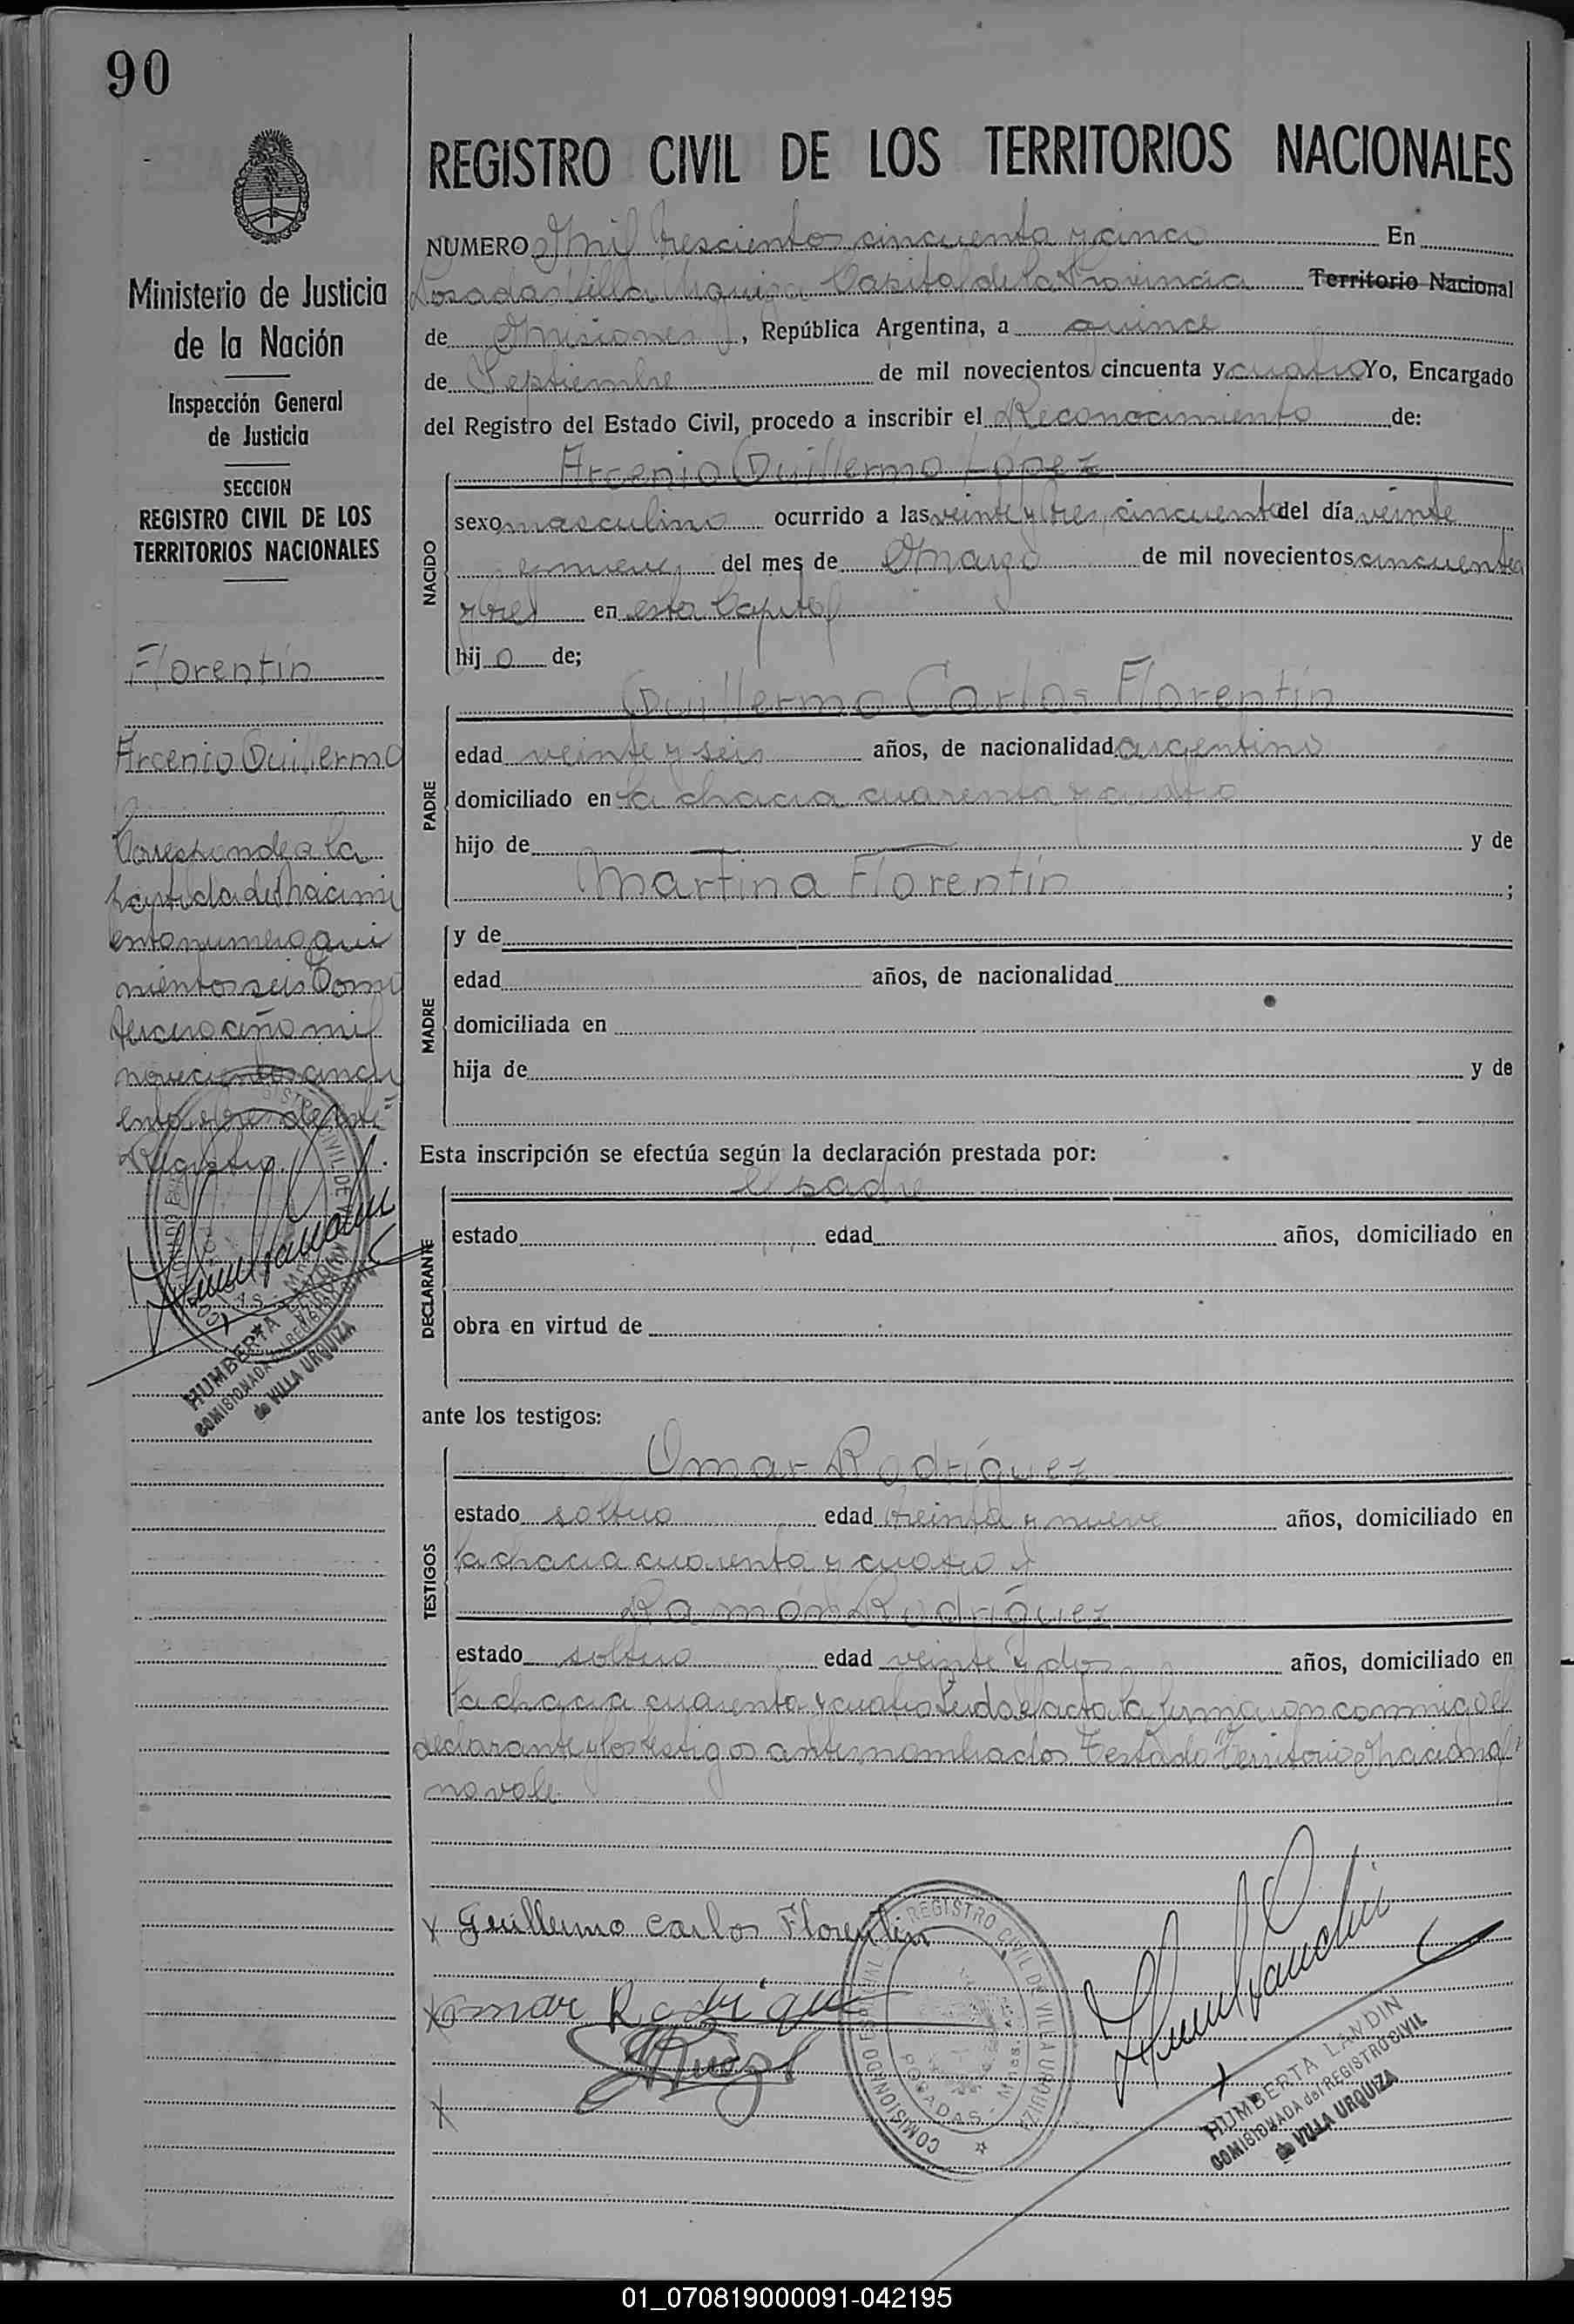 90
REGISTRO CIVIL DE LOS TERRITORIOS NACIONALES
Ministerio de Justicia
de la Nación
Inspección General
de Justicia
SECCION
REGISTRO CIVIL DE LOS
TERRITORIOS NACIONALES
Florentín
Arcenio Guillermo
Corresponde a la
partida de Nacimi
ento numero qui
nientos seis Tomo
tercero año mil
novecientos cincu
enta y tres de este
Registro.
HUMBERTA LANDIN
COMISIONADA del REGISTRO CIVIL
de VILLA URQUIZA
NUMERO Mil trescientos cincuenta y cinco En
Posadas Villa Urquiza Capital de la Provincia Territorio Nacional
de Misiones, República Argentina, a quince
de Septiembre de mil novecientos cincuenta y cuatro Yo, Encargado
del Registro del Estado Civil, procedo a inscribir el Reconocimiento de:
NACIDO
Arcenio Guillermo López
sexo masculino ocurrido a las veinte y tres, cincuenta del día veinte
y nueve del mes de Marzo de mil novecientos cincuenta
y tres en esta Capital
hijo de;
PADRE
Guillermo Carlos Florentín
edad veinte y seis años, de nacionalidad argentino
domiciliado en la chacra cuarenta y cuatro
hijo de y de
Martina Florentín ;
MADRE
y de
edad años, de nacionalidad
domiciliada en
hija de y de
Esta inscripción se efectúa según la declaración prestada por:
DECLARANTE
el padre
estado edad años, domiciliado en
obra en virtud de
ante los testigos:
TESTIGOS
Omar Rodríguez
estado soltero edad treinta y nueve años, domiciliado en
la chacra cuarenta y cuatro y
Ramón Rodríguez
estado soltero edad veinte y dos años, domiciliado en
la chacra cuarenta y cuatro Leido el acta la firmaron conmigo el
declarante y los testigos antes nombrados Testado "Territorio Nacional"
no vale
x Guillermo Carlos Florentin
x Omar Rodrigue
x
COMISIONADO ESPECIAL REGISTRO CIVIL DE VILLA URQUIZA
POSADAS - Mnes.
HUMBERTA LANDIN
COMISIONADA del REGISTRO CIVIL
de VILLA URQUIZA
01_070819000091-042195